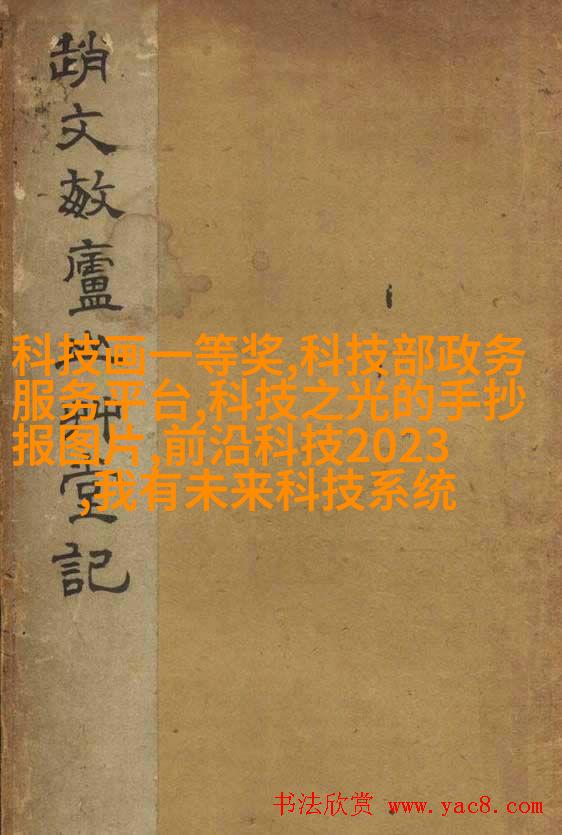 趙文敏廬山艸堂記
科技画一等奖,科技部政务
服务平台,科技之光的手抄
报图片,前沿科技2023
,我有未来科技系统
书法欣赏 www.yac8.com